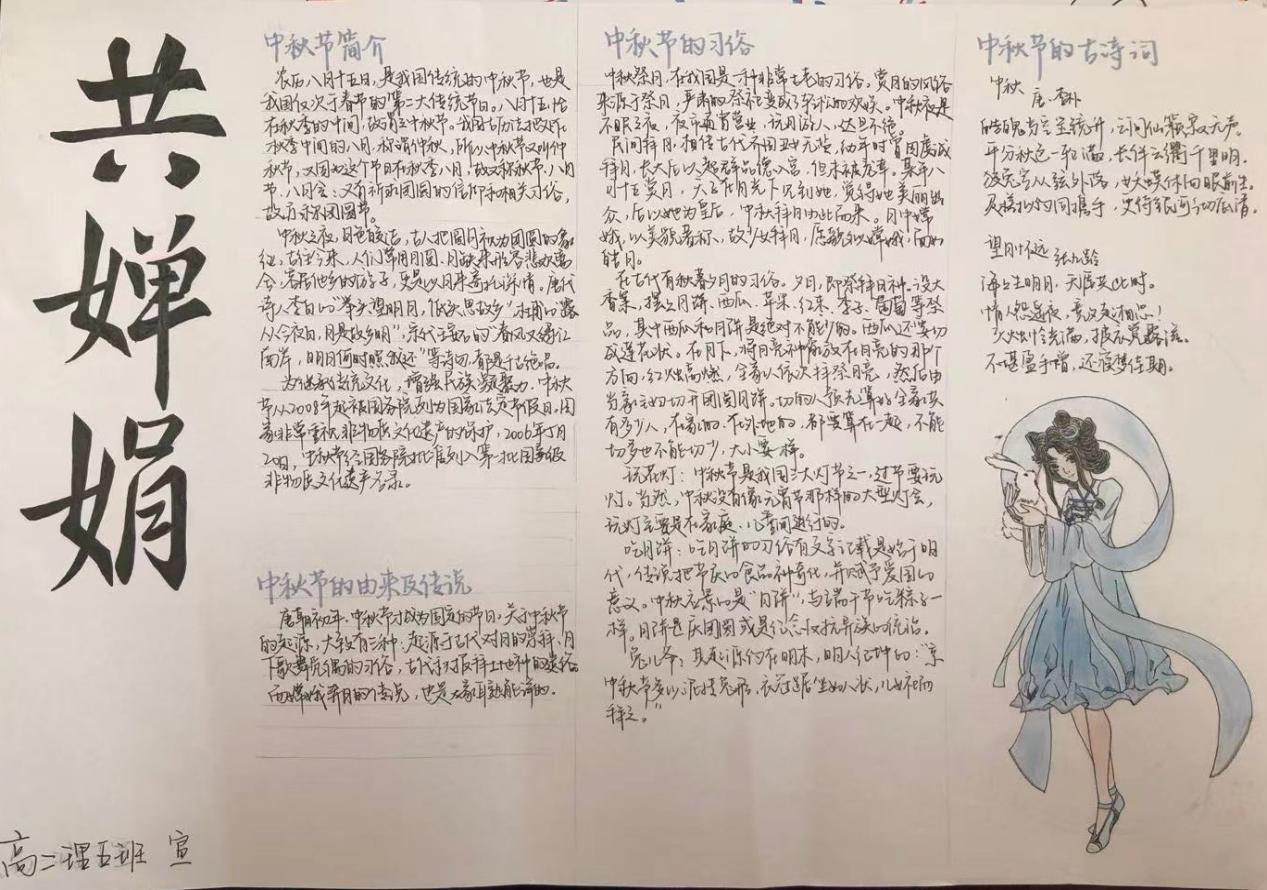 共婵娟
高二理五班 宣
中秋节简介
农历八月十五日，是我国传统的中秋节，也是
我国仅次于春节的"第二大传统节日。八月十五恰
在秋季的中间，故谓之中秋节。我国古历法把处在
秋季中间的八月，称谓仲秋，所以中秋节又叫仲
秋节，又因为这个节日在秋季八月，故又称秋节、八月
节、八月会；又有祈求团圆的信仰和相关习俗，
故亦称团圆节。
中秋之夜，月色皎洁，古人把圆月视为团圆的象
征，古往今来，人们常用月圆、月缺来形容悲欢离
合，客居他乡的游子，更是以月来寄托深情。唐代
诗人李白的"举头望明月，低头思故乡"，杜甫的"露
从今夜白，月是故乡明"，宋代王安石的"春风又绿江
南岸，明月何时照我还"等诗句，都是千古绝品。
为继承传统文化，增强民族凝聚力，中秋
节从2008年起被国务院列为国家法定节假日。国
家非常重视非物质文化遗产的保护，2006年5月
20日，中秋节经国务院批准列入第一批国家级
非物质文化遗产名录。
中秋节的由来及传说
唐朝初年，中秋节才成为固定的节日。关于中秋节
的起源，大致有三种：起源于古代对月的崇拜、月
下歌舞觅偶的习俗，古代秋报拜土地神的遗俗
而嫦娥奔月的传说，也是大家耳熟能详的。
中秋节的习俗
中秋祭月，在我国是一种非常古老的习俗。赏月的风俗
来源于祭月，严肃的祭祀变成了轻松的欢娱。中秋夜是
不眠之夜，夜市通宵营业，玩月游人，达旦不绝。
民间拜月：相传古代齐国丑女无盐，幼年时曾虔诚
拜月，长大后以超群品德入宫，但未被宠幸。某年八
月十五赏月，天子在月光下见到她，觉得她美丽出
众，后立她为皇后，中秋拜月由此而来。月中嫦
娥，以美貌著称，故少女拜月，愿貌似嫦娥，面如
皓月。
在古代有秋暮夕月的习俗。夕月，即祭拜月神。设大
香案，摆上月饼、西瓜、苹果、红枣、李子、葡萄等祭
品，其中西瓜和月饼是绝对不能少的。西瓜还要切
成莲花状。在月下，将月亮神像放在月亮的那个
方向，红烛高燃，全家人依次拜祭月亮，然后由
当家主妇切开团圆月饼。切的人预先算好全家共
有多少人，在家的、在外地的，都要算在一起，不能
切多也不能切少，大小要一样。
玩花灯：中秋节是我国三大灯节之一，过节要玩
灯。当然，中秋没有像元宵节那样的大型灯会，
玩灯主要是在家庭、儿童间进行的。
吃月饼：吃月饼的习俗有文字记载是始于明
代，传说把节庆的食品神奇化，并赋予爱国的
意义。中秋应景的是"月饼"，与端午节吃粽子一
样。月饼是庆团圆或是纪念反抗异族的统治。
兔儿爷：其起源约在明末，明人纪坤的："京
中秋节多以泥抟兔形，衣冠踞坐如人状，儿女祀而
拜之。"
中秋节的古诗词
中秋
唐·李朴
皓魄当空宝镜升，云间仙籁寂无声。
平分秋色一轮满，长伴云衢千里明。
狡兔空从弦外落，妖蟆休向眼前生。
灵槎拟约同携手，更待银河彻底清。
望月怀远 张九龄
海上生明月，天涯共此时。
情人怨遥夜，竟夕起相思！
灭烛怜光满，披衣觉露滋。
不堪盈手赠，还寝梦佳期。